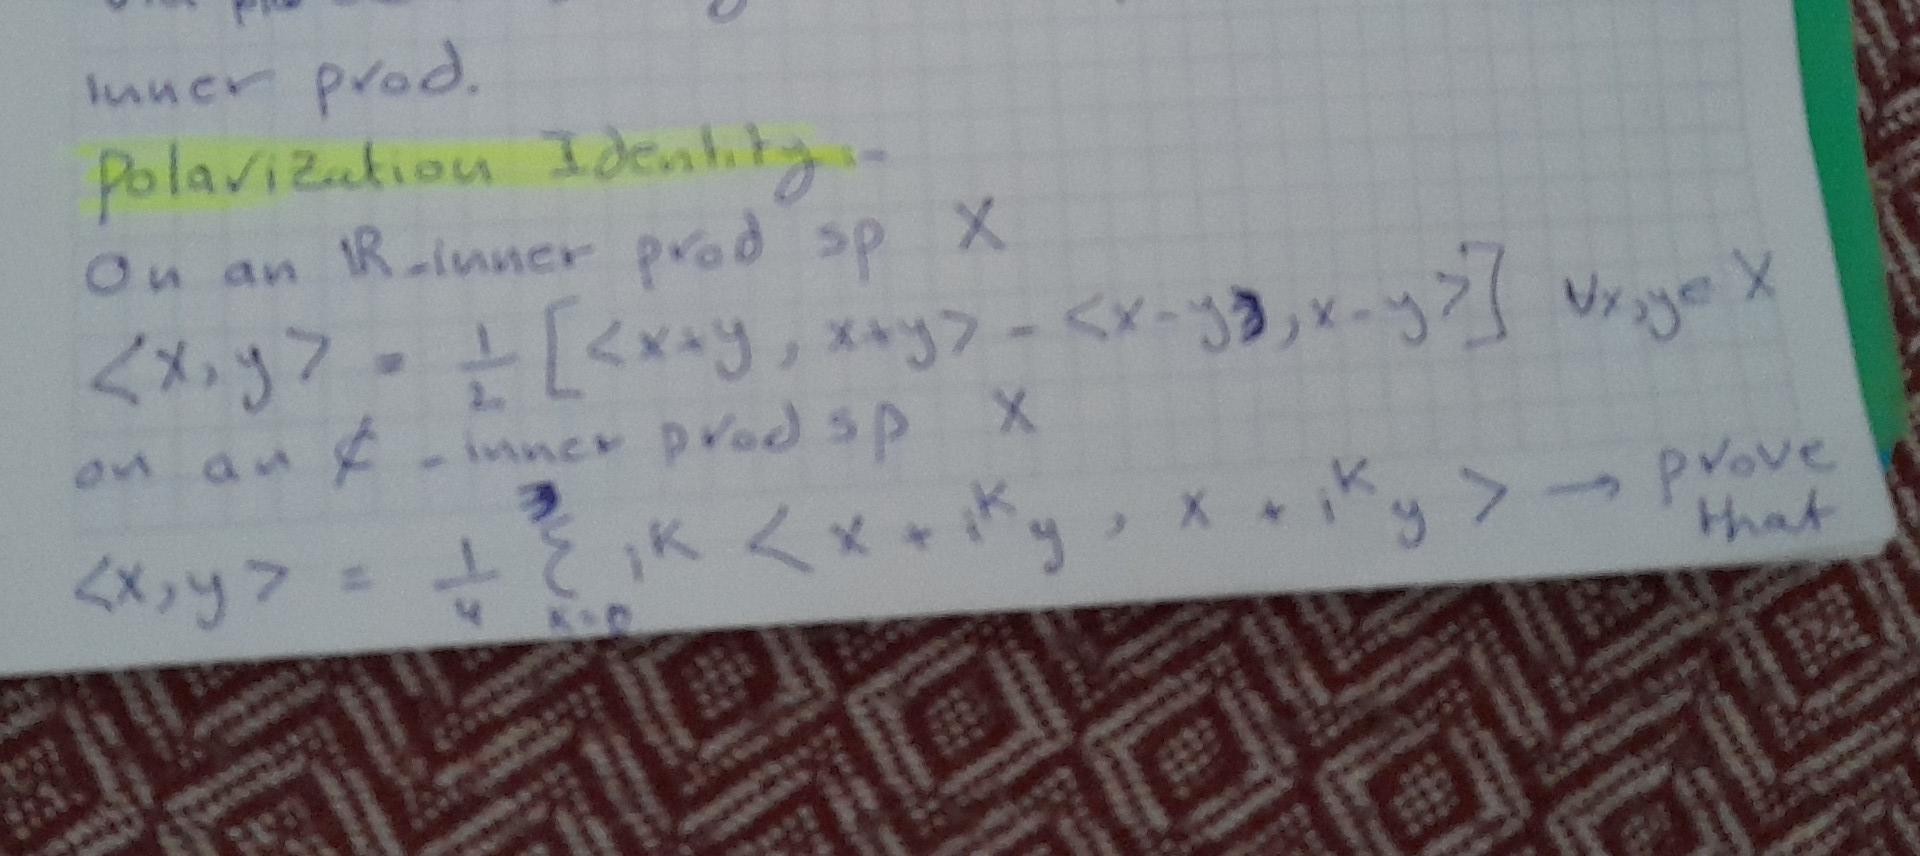 inner prod.
Polarization Identity:-
On an ℝ-inner prod sp X
<x,y> = 1/2 [<x+y, x+y> - <x-y, x-y>] ∀x,y∈X
on an ℂ-inner prod sp X
<x,y> = 1/4 Σ_{k=0}^{3} i^k <x + i^k y, x + i^k y> → prove
that